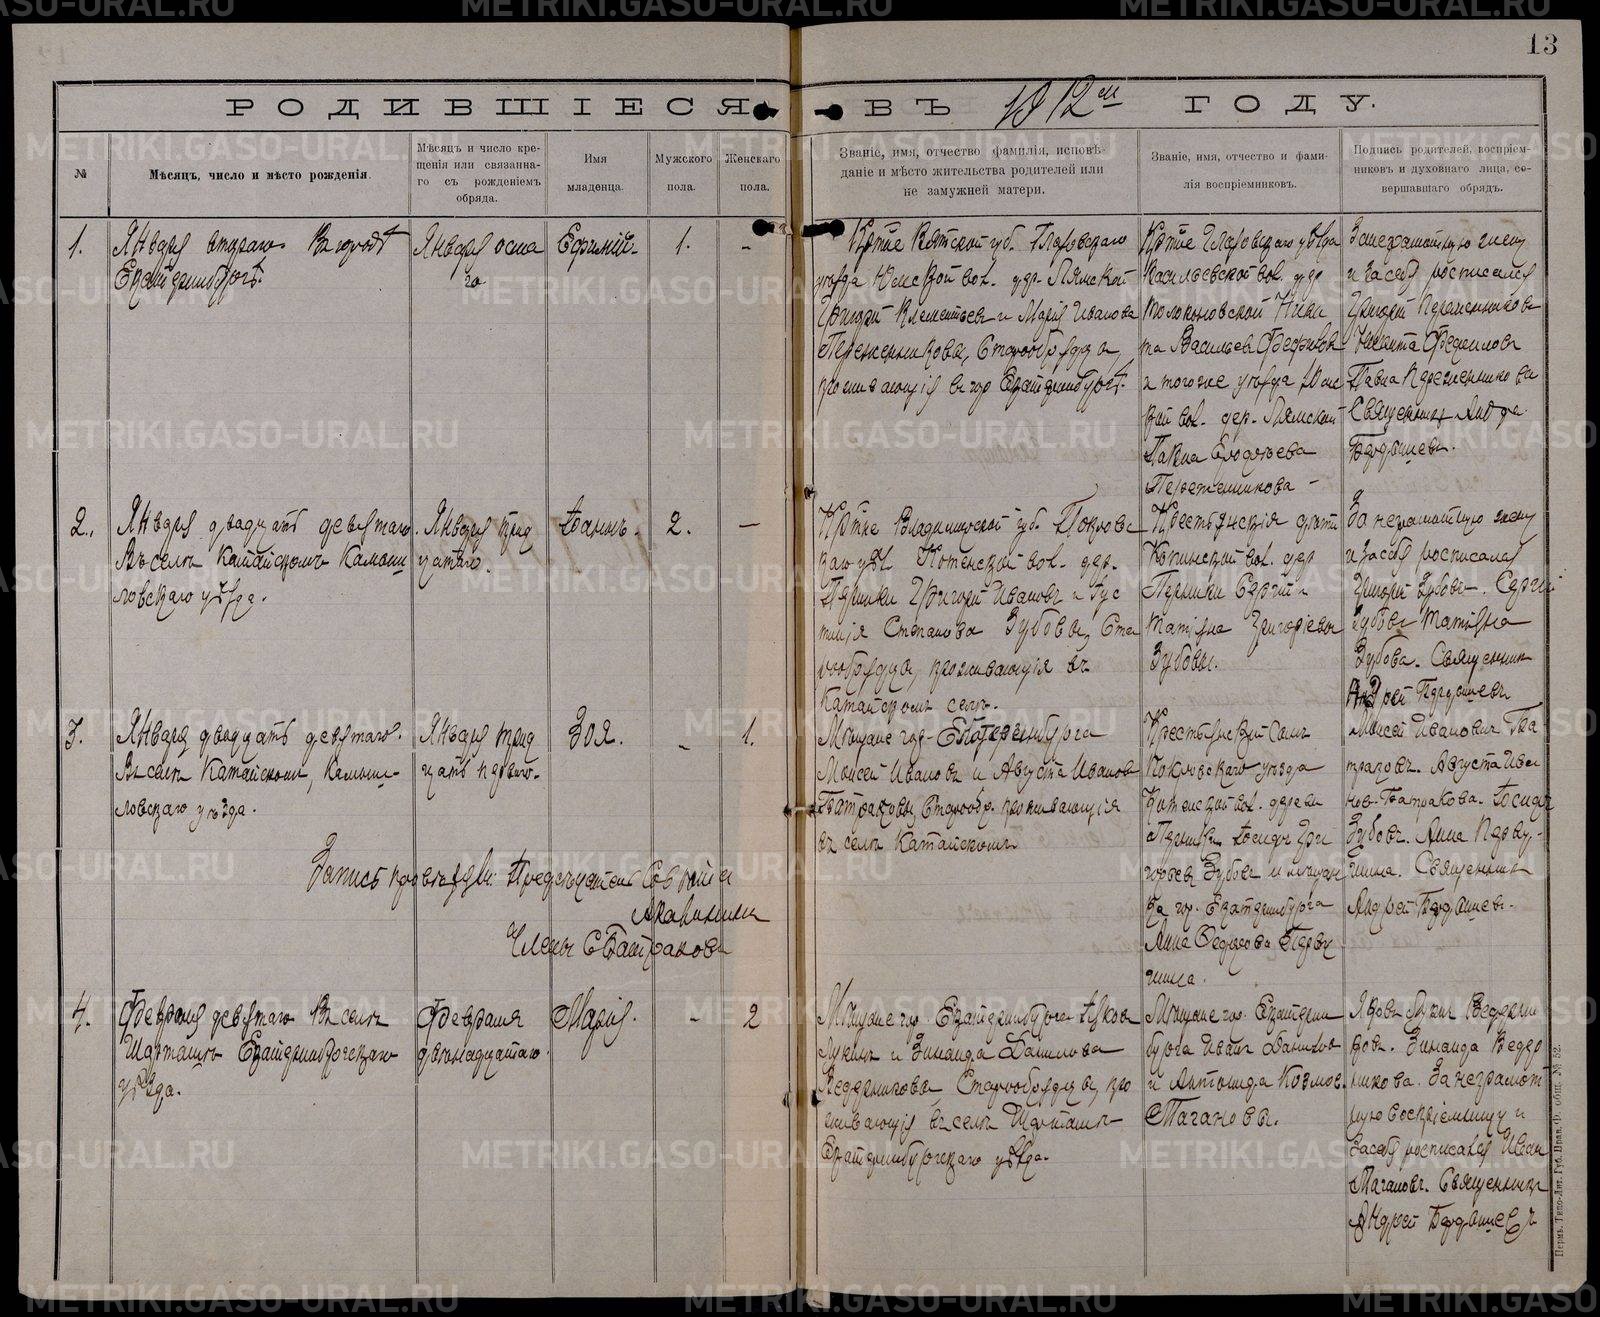 13
РОДИВШІЕСЯ ВЪ 1912 ГОДУ.
№
Мѣсяцъ, число и мѣсто рожденія.
Мѣсяцъ и число кре-
щенія или связанна-
го съ рожденіемъ
обряда.
Имя
младенца.
Мужского
пола.
Женскаго
пола.
Званіе, имя, отчество фамилія, исповѣ-
даніе и мѣсто жительства родителей или
не замужней матери.
Званіе, имя, отчество и фами-
лія воспріемниковъ.
Подпись родителей, воспріем-
никовъ и духовнаго лица, со-
вершавшаго обрядъ.
1.
Января втораго Въ городѣ
Екатеринбургѣ.
Января осма
го
Ефимій.
1.
-
Кртне Вятской губ. Глазовскаго
уѣзда вол. дер.
Григорій Клементьевъ и Марія Иванова
Старообрядцы,
проживающія въ гор Екатеринбургѣ.
Кртне Глазовскаго уѣзда
Васильевской вол. дер
Ники
та Васильевъ
и тогоже уѣзда
вол. дер.
Павла
За неграмотную жену
и за себя росписался
Григорій
Никита
Павла
Священникъ Андрей
Бердышевъ.
2.
Января двадцать девятаго
Въ селѣ Катайскомъ Камыш
ловскаго уѣзда.
Января трид
цатаго.
2.
-
Кртне Владимирской губ. Покровс
каго уѣз. вол. дер.
Григорій Ивановъ и Іус
тинія Степанова Зубовы, Ста
рообрядцы, проживающія въ
Катайскомъ селѣ.
Крестьянскія дѣти
вол. дер
Сергій и
Матрена Григорьевы
Зубовы.
За неграмотную жену
и за себя росписался
Григорій Зубовъ. Сергій
Зубовъ Матрена
Зубова. Священникъ
Андрей Бердышевъ
3.
Января двадцать девятаго.
Въ селѣ Катайскомъ, Камыш-
ловскаго уѣзда.
Января трид
цать перваго.
Зоя.
-
1.
Мѣщане гор. Екатеринбурга
Моисей Ивановъ и Августа Иванова
Батраковы, Старообр. проживающія
въ селѣ Катайскомъ
Крестьянскій сынъ
Покровскаго уѣзда
вол. деревни
Іосифъ Гри
горьевъ Зубовъ и мѣщан
ка гор. Екатеринбурга
Анна
Моисей Ивановъ Ба
траковъ. Августа Ива
нов. Батракова. Іосифъ
Зубовъ. Анна
Священникъ
Андрей Бердышевъ.
Запись провѣряли: Предсѣдатель Совѣта
Члены С Батраковъ
4.
Февраля девятаго Въ селѣ
Шарташѣ Екатеринбургскаго
уѣзда.
Февраля
двѣнадцатаго.
Марія.
-
2
Мѣщане гор. Екатеринбурга Іяковъ
Лукинъ и Зинаида Данилова
Ведерниковы, Старообрядцы, про
живающія въ селѣ Шарташѣ
Екатеринбургскаго уѣзда.
Мѣщане гор. Екатерин
бурга Иванъ Даниловъ
и Антонида Козмов.
Магановы.
Яковъ Лукинъ Ведерни
ковъ. Зинаида Ведер
никова. За неграмот
ную воспріемницу и
за себя росписался Иван
Магановъ. Священникъ
Андрей Бердышевъ
Пермь. Типо-Лит. Губ. Прав. Ф. общ. № 52.
METRIKI.GASO-URAL.RU